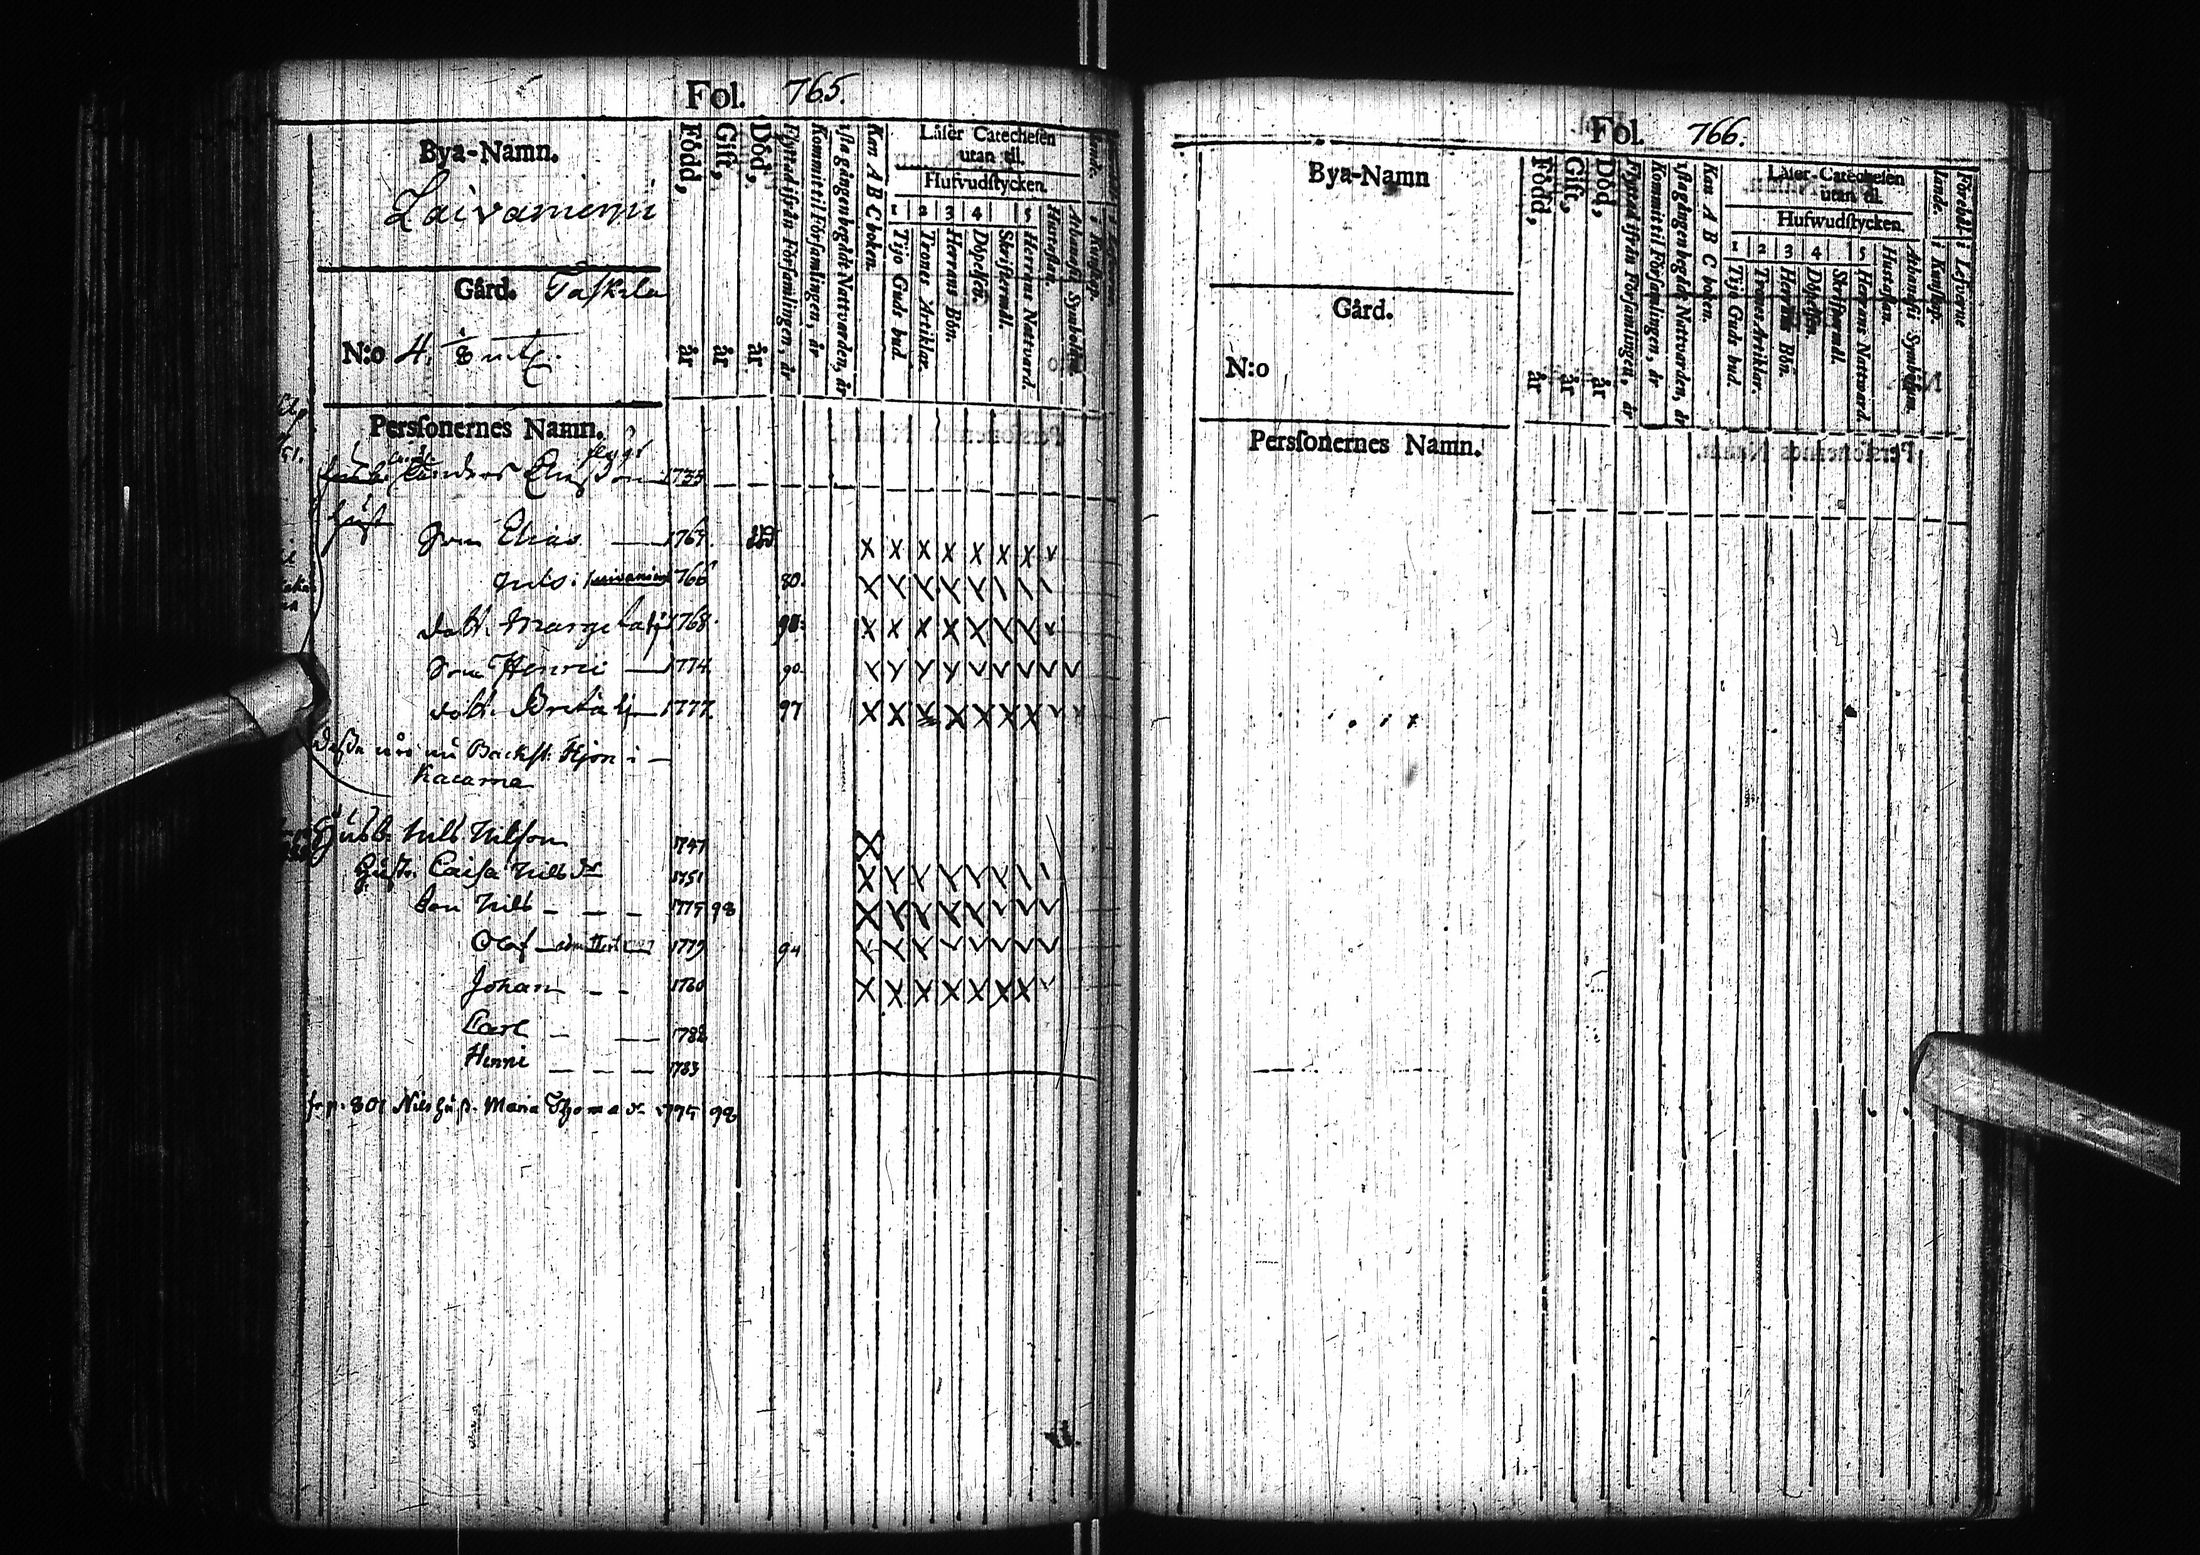 Fol. 765.
Bya-Namn.
Laivaniemi
Gård. Taskila
N:o 4. 1/8 mtl.
Född, år
Gift, år
Död, år
Flyttad ifrån Församlingen, år
Kommit til Församlingen, år
1sta gången begådt Nattvarden, år
Kan A B C boken.
Läser Catechesen
utan til.
Hufvudstycken.
1 2 3 4 5
Tijo Guds bud.
Trones Artiklar.
Herrans Bön.
Döpelsen.
Skriftermål.
Herrans Nattvard.
Hustaflan.
Athanasii Symbolum.
Personernes Namn.
Anders Eliasson 1735
Hust
Son Elias 1764
Nils 1766 80.
dott. Marg 1768. 90.
Son Henric 1774. 90.
dott. Brita 1777. 97
desse äro nu Backst. Hjon i
Kacarna
Husb. Nils Nilsson 1747
Hustr. Caisa Nils dr 1751
Son Nils 1775 98
Olof 1779 94
Johan 1780
Carl 1782
Henric 1783
fr. p. 801 Nils hust. Maria Thomæ dr 1775 98
Fol. 766.
Bya-Namn
Gård.
N:o
Född, år
Gift, år
Död, år
Flyttad ifrån Församlingen, år
Kommit til Församlingen, år
1sta gången begådt Nattvarden, år
Kan A B C boken.
Läser Catechesen
utan til.
Hufwudstycken.
1 2 3 4 5
Tijo Guds bud.
Trones Artiklar.
Herrans Bön.
Döpelsen.
Skriftermål.
Herrans Nattvard.
Hustaflan.
Athanasii Symbolum.
Förehåls i Kunskap.
i Lefverne
Personernes Namn.